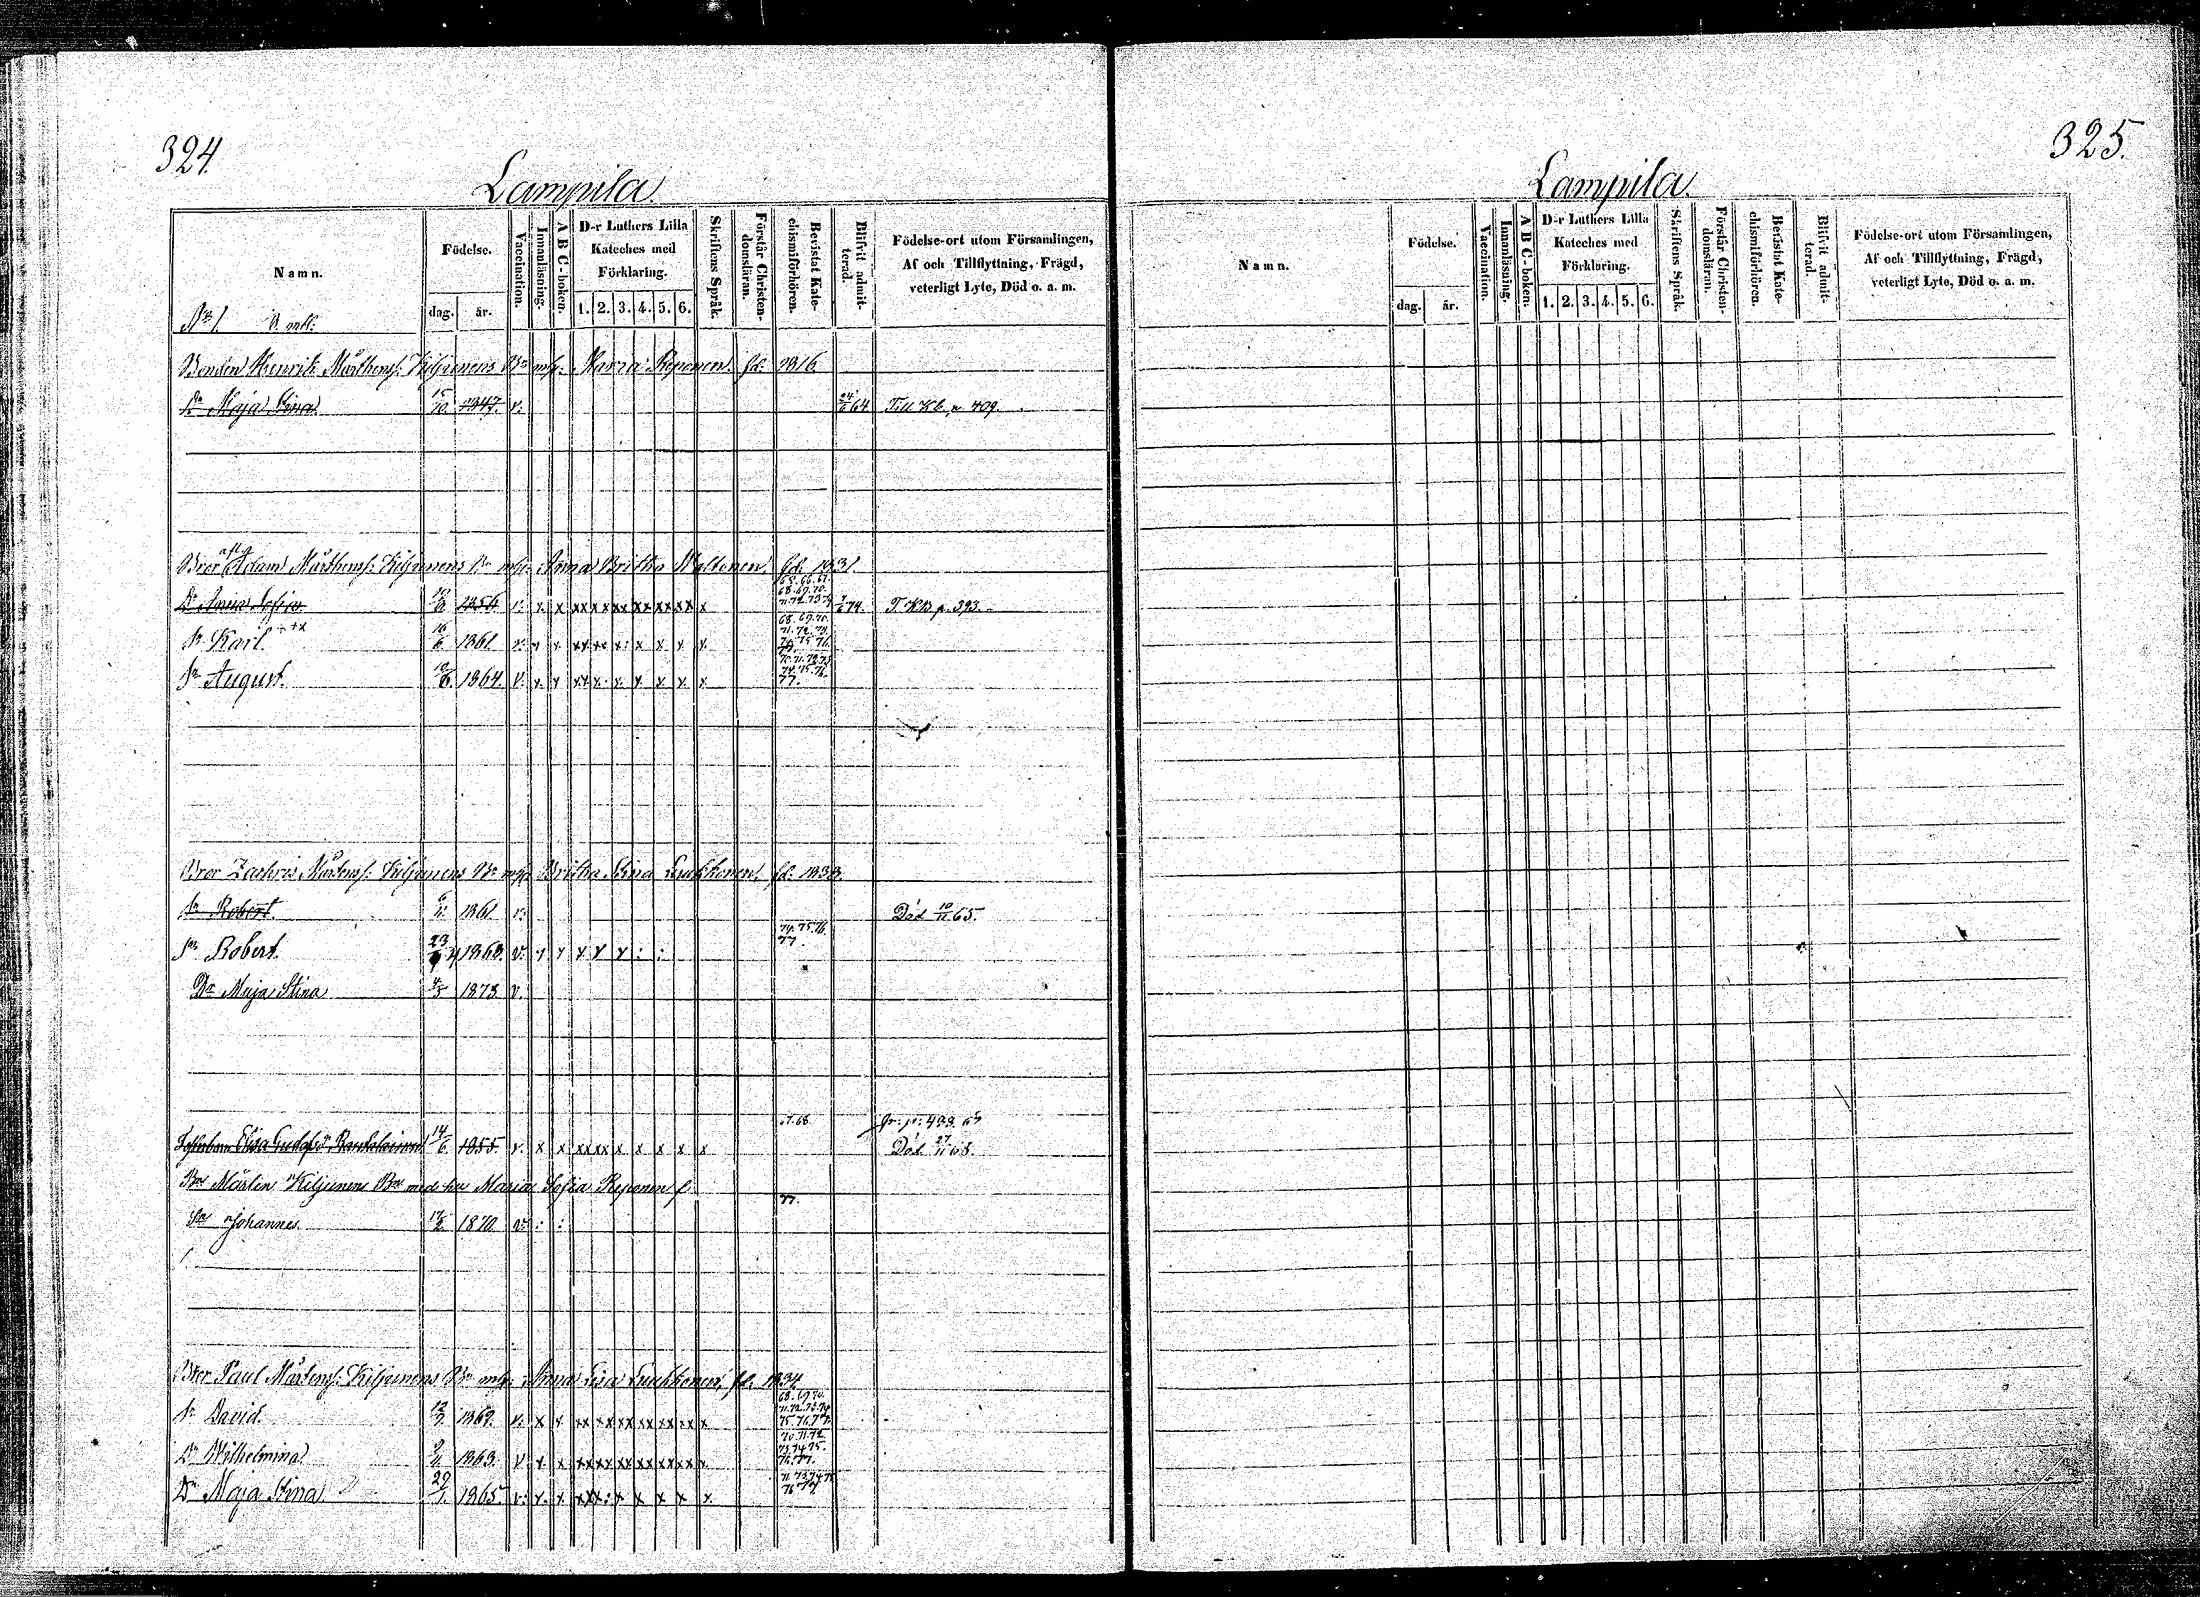 324.
Lampila.
Namn. Födelse. dag. år. Vaccination. Innanläsning. A B C-boken. D-r Luthers Lilla Kateches med Förklaring. 1. 2. 3. 4. 5. 6. Skriftens Språk. Förstår Christendomsläran. Bevistat Katechismiförhören. Blifvit admitterad. Födelse-ort utom Församlingen, Af och Tillflyttning, Frägd, veterligt Lyte, Död o. a. m.
No 1.
Bonden Henrik Mårthensf: Kiljunens Bn m/h: Maria Reponen fd: 1816.
Dr Maja Stina 15/10. 1847. v. 24/6 64 Till Kb. p 409.
Bror Adam Mårthensf: Kiljunens Bn m/h: Anna Britha Waltonen, fd: 1831.
Dr Anna Sofia 1856 v. x x xx xx xx xx xx xx x 65. 66. 67. 68. 69. 70. 71. 72. 73 74 74. T. KB p. 393.
Sn Karl. 16/6. 1861. v: x x x x x x x 68. 69. 70. 71. 72. 73. 74. 75. 76. 77.
Sn August. 1864. v. x x x x x x x 70. 71. 72. 73. 74. 75. 76. 77.
Bror Zachris Mårtensf: Kiljunens Bn m/h: Britha Stina Luukkonen, fd: 1833.
Sn Robert. 1861. v: Död 10/11 65.
Sn Robert. 23 1868. v. x x x x x : : 74. 75. 76. 77.
Dr Maja Stina 1873 v.
67. 68. fr: p: 433. 67
Elisa 14/6. 1855. v. x x xx xx x x x x x Död 27/11 68.
Bror Mårtin Kiljunens Bn med hu Maria Sofia Reponen f.
Sn Johannes. 17/2. 1870. v. : : 77.
Bror Paul Mårtensf: Kiljunens Bn m/h: Anna Lisa Luukkonen, fd: 1834
Sn David. v. x x xx xx xx xx xx xx x 68. 69. 70. 71. 72. 73. 74. 75. 76. 77.
Dr Wilhelmina 1863. v. x x xx xx xx xx xx xx x 70. 71. 72. 73. 74. 75. 76. 77.
Dr Maja Stina. 29/1. 1865. v: x. x x x x x x x 71. 73. 74. 75 76 77
325.
Lampila.
Namn. Födelse. dag. år. Vaccination. Innanläsning. A B C-boken. D-r Luthers Lilla Kateches med Förklaring. 1. 2. 3. 4. 5. 6. Skriftens Språk. Förstår Christendomsläran. Bevistat Katechismiförhören. Blifvit admitterad. Födelse-ort utom Församlingen, Af och Tillflyttning, Frägd, veterligt Lyte, Död o. a. m.